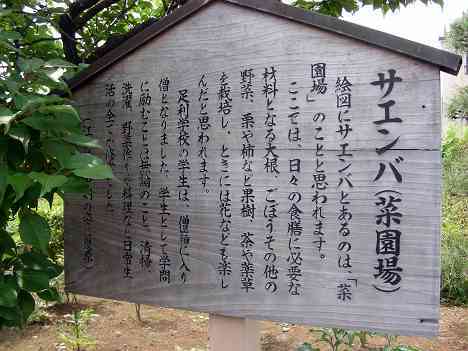 サエンバ(菜園場)
絵図にサエンバとあるのは、「菜
園場」のことと思われます。
ここでは、日々の食膳に必要な
材料となる大根、ごぼうその他の
野菜、栗や柿など果樹、茶や薬草
を栽培し、ときには花なども楽し
んだと思われます。
足利学校の学生は、僧籍に入り
僧となりました。学生として学問
に励むことは無論のこと、清掃、
洗濯、野菜作り、料理など日常生
活の全て